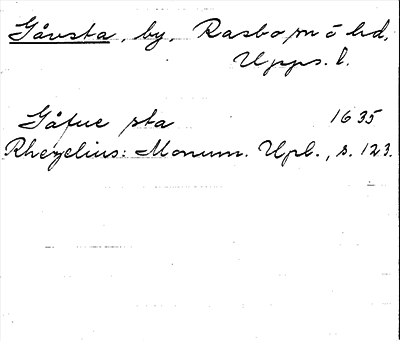 Gåvsta, by, Rasbo sn o hd,
Upps. l.
Gåfue sta 1635
Rhezelius: Monum. Upl., s. 123.